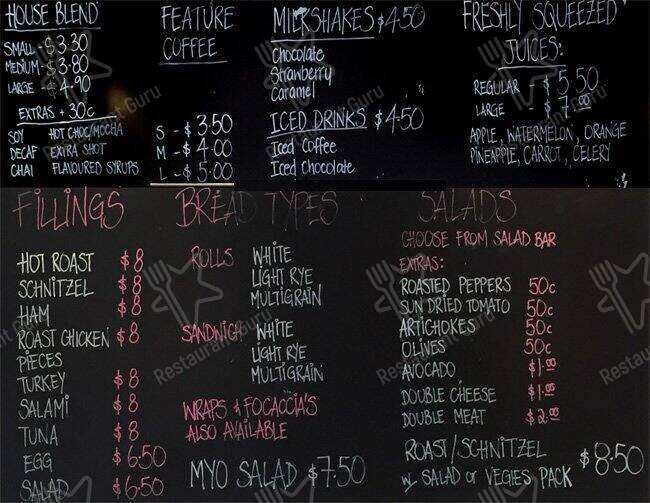 HOUSE BLEND
SMALL - $3.30
MEDIUM - $3.80
LARGE - $4.90
EXTRAS + 30c
SOY HOT CHOC/MOCHA
DECAF EXTRA SHOT
CHAI FLAVOURED SYRUPS
FEATURE
COFFEE
S - $3.50
M - $4.00
L - $5.00
MILKSHAKES $4.50
Chocolate
Strawberry
Caramel
ICED DRINKS $4.50
Iced Coffee
Iced Chocolate
FRESHLY SQUEEZED
JUICES:
REGULAR - $5.50
LARGE - $7.00
APPLE, WATERMELON, ORANGE
PINEAPPLE, CARROT, CELERY
FILLINGS
HOT ROAST $8
SCHNITZEL $8
HAM $8
ROAST CHICKEN $8
PIECES
TURKEY $8
SALAMI $8
TUNA $8
EGG $6.50
SALAD $6.50
BREAD TYPES
ROLLS WHITE
LIGHT RYE
MULTIGRAIN
SANDWICH WHITE
LIGHT RYE
MULTIGRAIN
WRAPS & FOCACCIA'S
ALSO AVAILABLE
MYO SALAD $7.50
SALADS
CHOOSE FROM SALAD BAR
EXTRAS:
ROASTED PEPPERS 50c
SUN DRIED TOMATO 50c
ARTICHOKES 50c
OLIVES 50c
AVOCADO
DOUBLE CHEESE
DOUBLE MEAT
ROAST/SCHNITZEL $8.50
W SALAD or VEGIES PACK
Restaurant Guru
Restaurant Guru
Restaurant Guru
Restaurant Guru